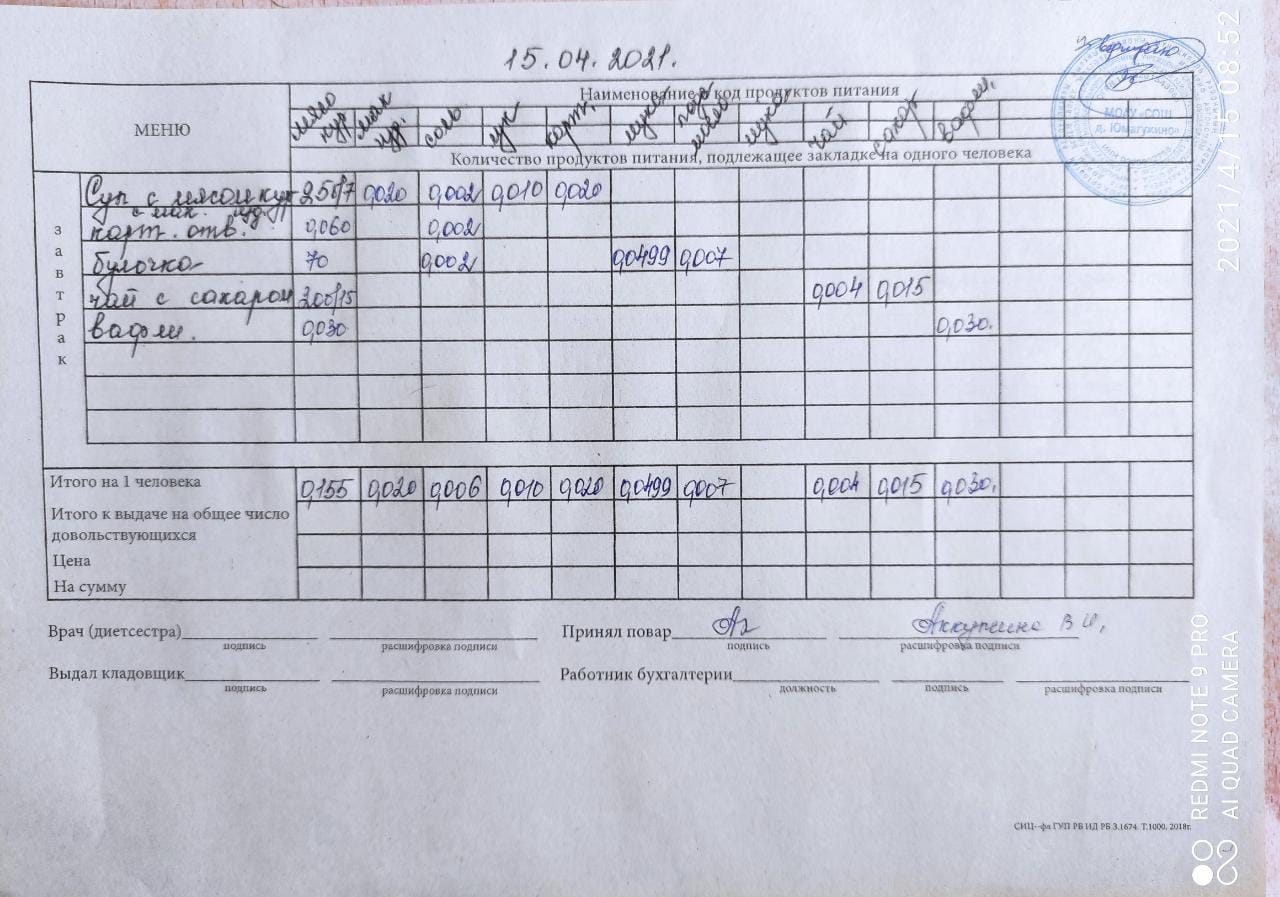 15.04.2021.
Наименование и код продуктов питания
МЕНЮ
мясо кур мак изд. соль лук карт. мука подс масло мука чай сахар вафли.
Количество продуктов питания, подлежащее закладке на одного человека
завтрак
Суп с мясом кур 250/7 0,020 0,002 0,010 0,020
с мак. изд.
карт. отв. 0,060 0,002
булочка 70 0,002 0,0499 0,007
чай с сахаром 200/15 0,004 0,015
вафли. 0,030 0,030.
Итого на 1 человека 0,155 0,020 0,006 0,010 0,020 0,0499 0,007 0,004 0,015 0,030.
Итого к выдаче на общее число
довольствующихся
Цена
На сумму
Врач (диетсестра) Принял повар
подпись расшифровка подписи подпись расшифровка подписи
Выдал кладовщик Работник бухгалтерии
подпись расшифровка подписи должность подпись расшифровка подписи
СИЦ--фл ГУП РБ ИД РБ З.1674. Т.1000. 2018г.
МОБУ «СОШ
д. Юмагужино»
2021/4/15 08:52
REDMI NOTE 9 PRO
AI QUAD CAMERA